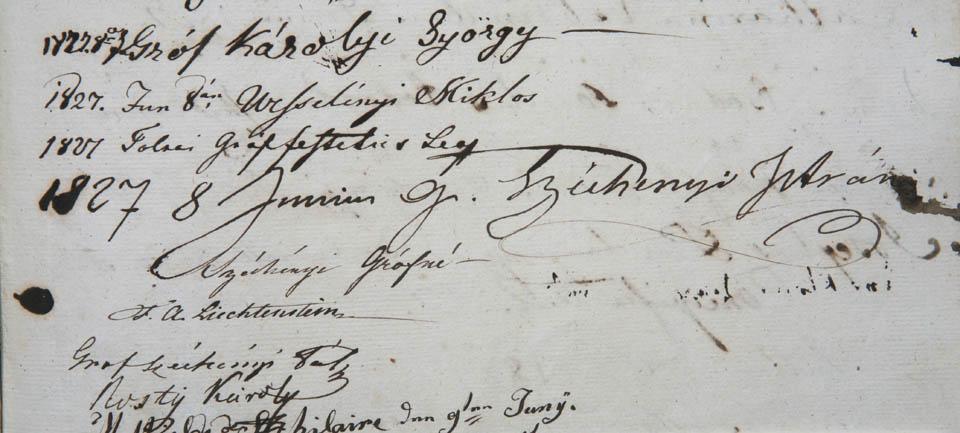 1827. 8 Gróf Károlyi György
1827. Jun 8án Wesselényi Miklos
1827 Tolnai Gróf Festetics Leo
1827 8 Junius G. Széchenyi István
Széchényi Grófné
F. A. Liechtenstein
Graf Széchényi Pál
Rosty Károly
hilaire den 9ten Juny.